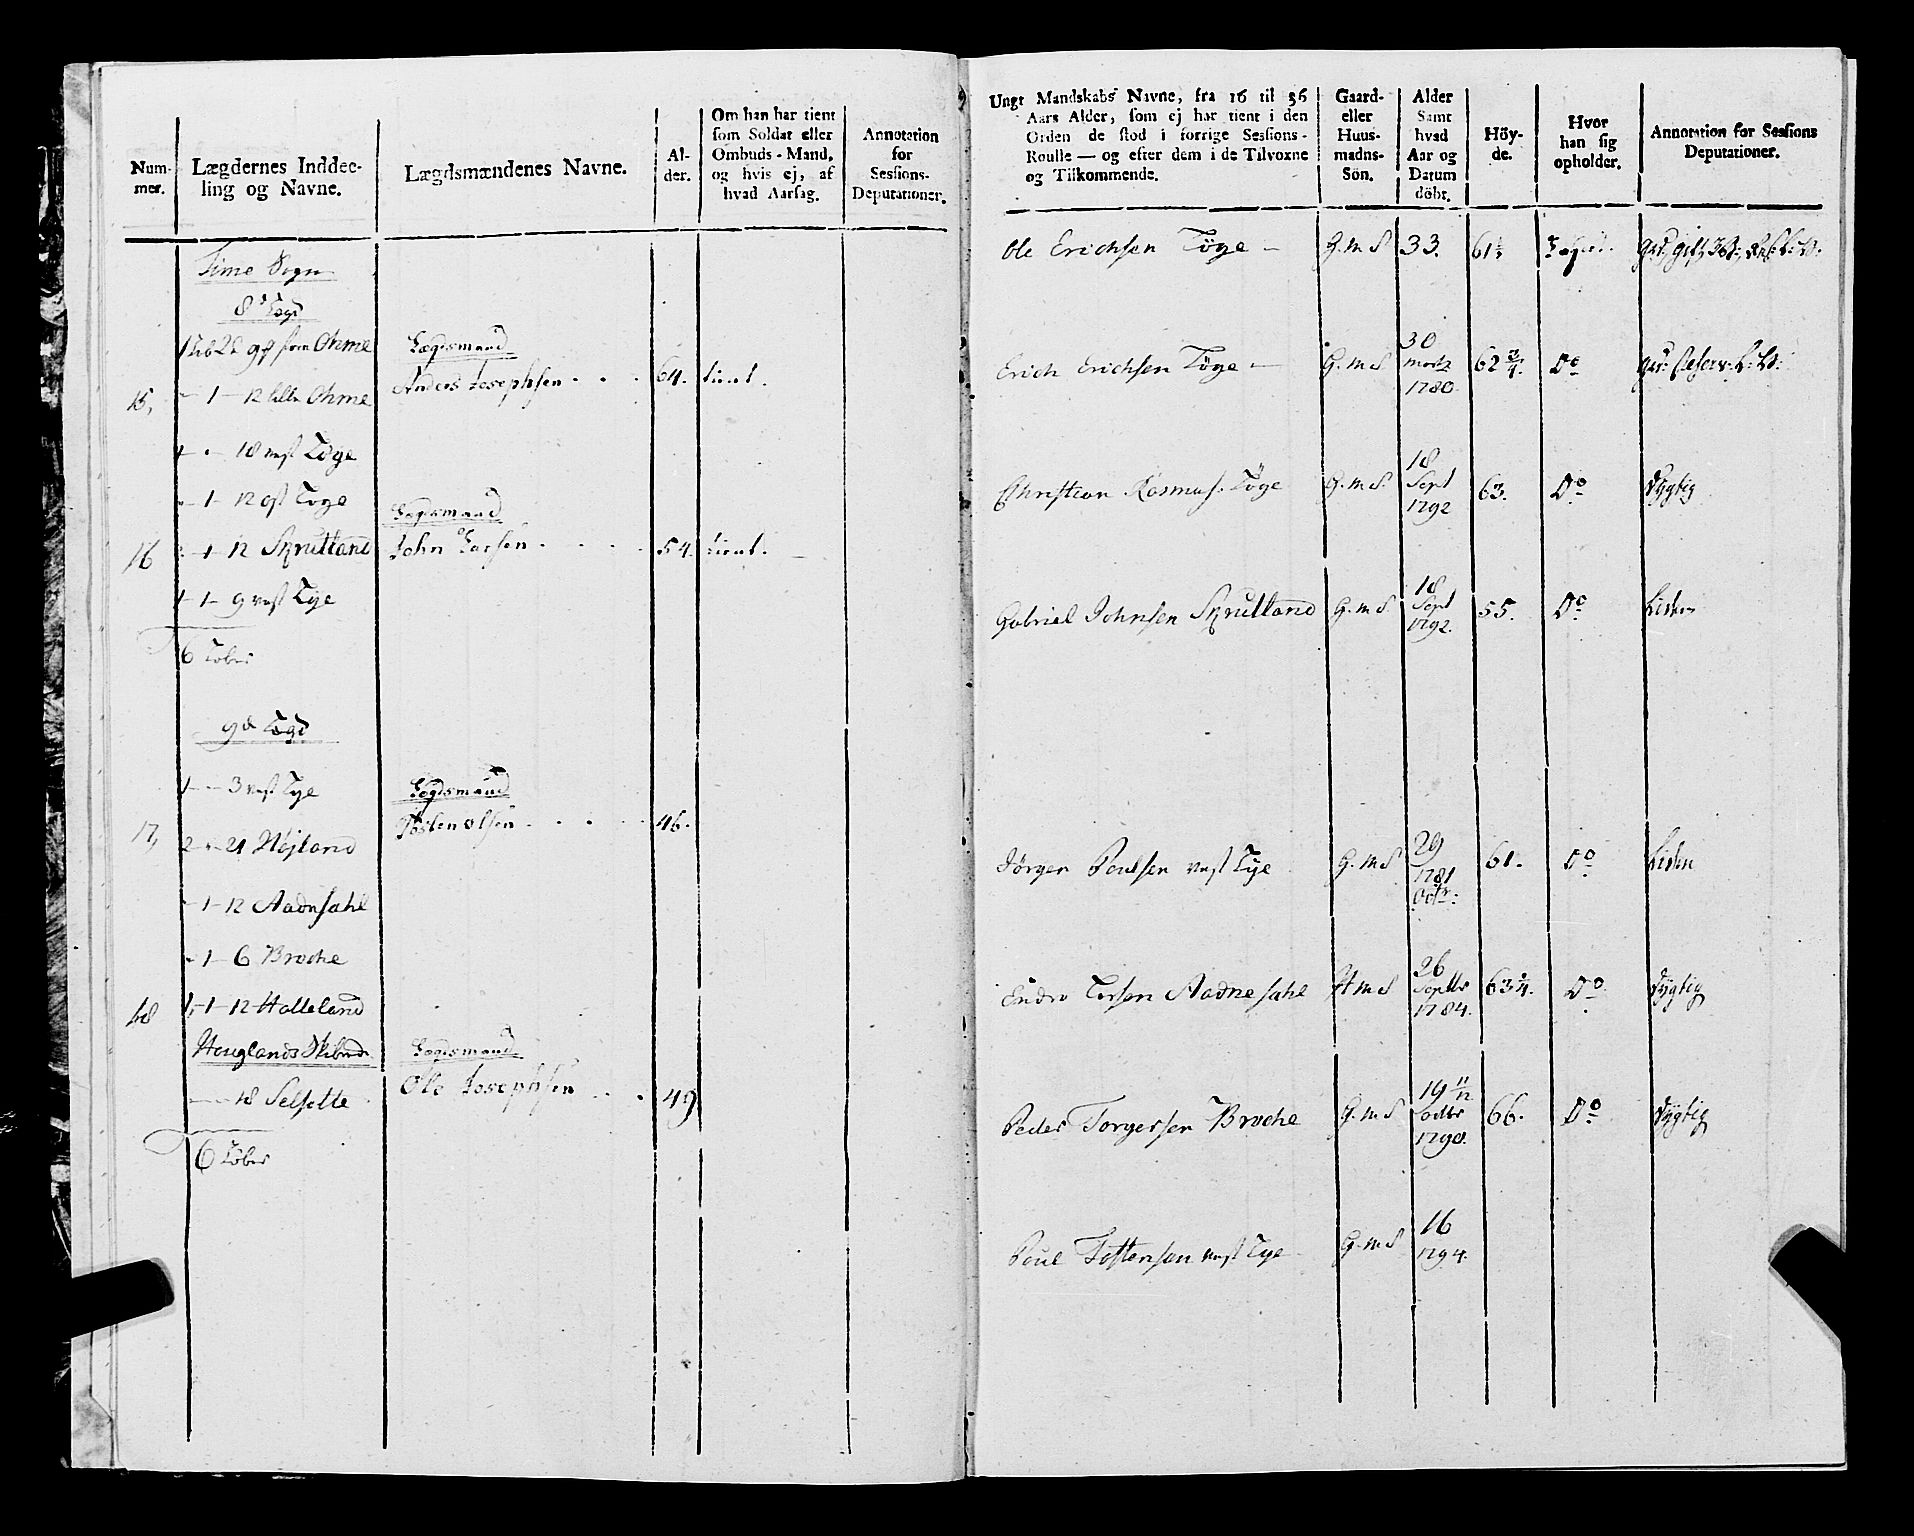 Num-
mer.
Lægdernes Inddee-
ling og Navne.
Lægdsmændenes Navne.
Al-
der.
Om han har tient
som Soldat eller
Ombuds-Mand,
og hvis ej, af
hvad Aarsag.
Annotation
for
Sessions-
Deputationer.
Time Sogn
8de Lægd
Lægdsmand
15,
Anders Josephsen
64. tient.
1 - 12 lille Ohme
18 vest Tøge
1 - 12 øst Tøge
Lægdsmand
16
1 - 12 Skrutland
John Larsen
54. tient.
1 - 1 - 9 vest Tye
6 Løber
9de Lægd
1 - 3 vest Tye
Lægdsmand
17,
Tosten Olsen
46.
2 - 21 Højland
1 - 12 Aadnesahl
1 - 6 Broche
18
1 - 1 - 12 Halleland
Houglands Skibrede
Lægdsmand
18 Selsette
Ole Josephsen
49
6 Løber
Ungt Mandskabs Navne, fra 16 til 56
Aars Alder, som ej har tient i den
Orden de stod i forrige Sessions-
Roulle — og efter dem i de Tilvoxne
og Tilkommende.
Gaard-
eller
Huus-
madns-
Sön.
Alder
Samt
hvad
Aar og
Datum
döbt.
Höy-
de.
Hvor
han sig
opholder.
Annotation for Sessions
Deputationer.
Ole Erichsen Tøge - G. m S 33. 61½
Erich Erichsen Tøge - G. m S 30 martz 1780. 62¾. Do
Christian Rasmus. Tøge G. m S. 18 Sept 1792 63. Do Dygtig
Gabriel Johnsen Skrutland G. m S 18 Sept 1792. 55. Do Liden
Jørgen Poulsen vest Tye G. m S 29 1781 Octr: 61. Do Liden
Endre Larsen Aadnesahl H m S 26 Septbr 1784. 63¼. Do Dygtig
Peder Torgersen Broche G. m S 19 11/12 1790. 66. Do Dygtig
Poul Tostensen vest Tye G. m S 16 1794.